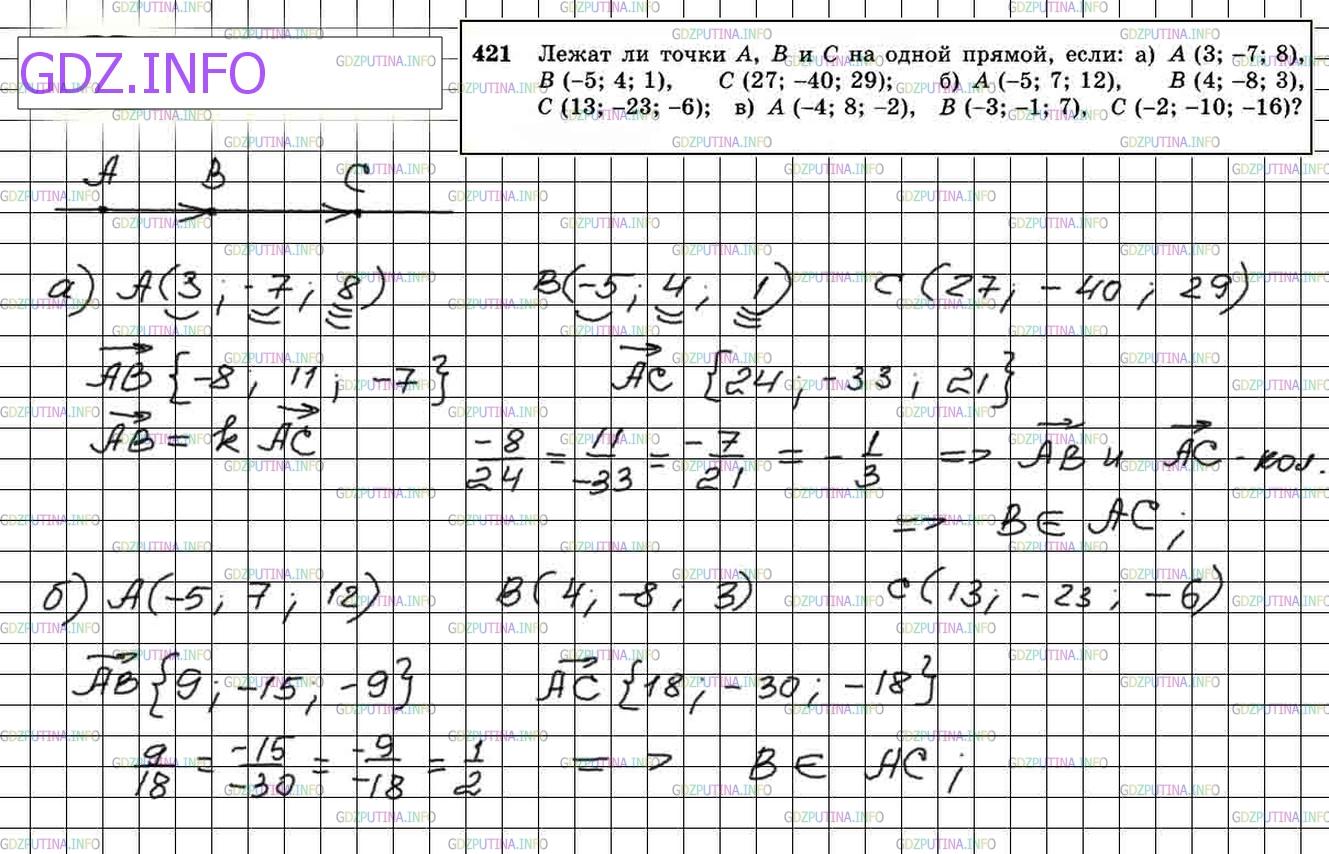 GDZ.INFO
421 Лежат ли точки A, B и C на одной прямой, если: а) A (3; −7; 8),
B (−5; 4; 1), C (27; −40; 29); б) A (−5; 7; 12), B (4; −8; 3),
C (13; −23; −6); в) A (−4; 8; −2), B (−3; −1; 7), C (−2; −10; −16)?
A B C
а) A(3; -7; 8) B(-5; 4; 1) C(27; -40; 29)
AB {-8; 11; -7} AC {24; -33; 21}
AB = k AC -8/24 = 11/-33 = -7/21 = -1/3 => AB и AC - кол.
=> B ∈ AC;
б) A(-5; 7; 12) B(4; -8; 3) C(13; -23; -6)
AB {9; -15; -9} AC {18; -30; -18}
9/18 = -15/-30 = -9/-18 = 1/2 => B ∈ AC;
GDZPUTINA.INFO